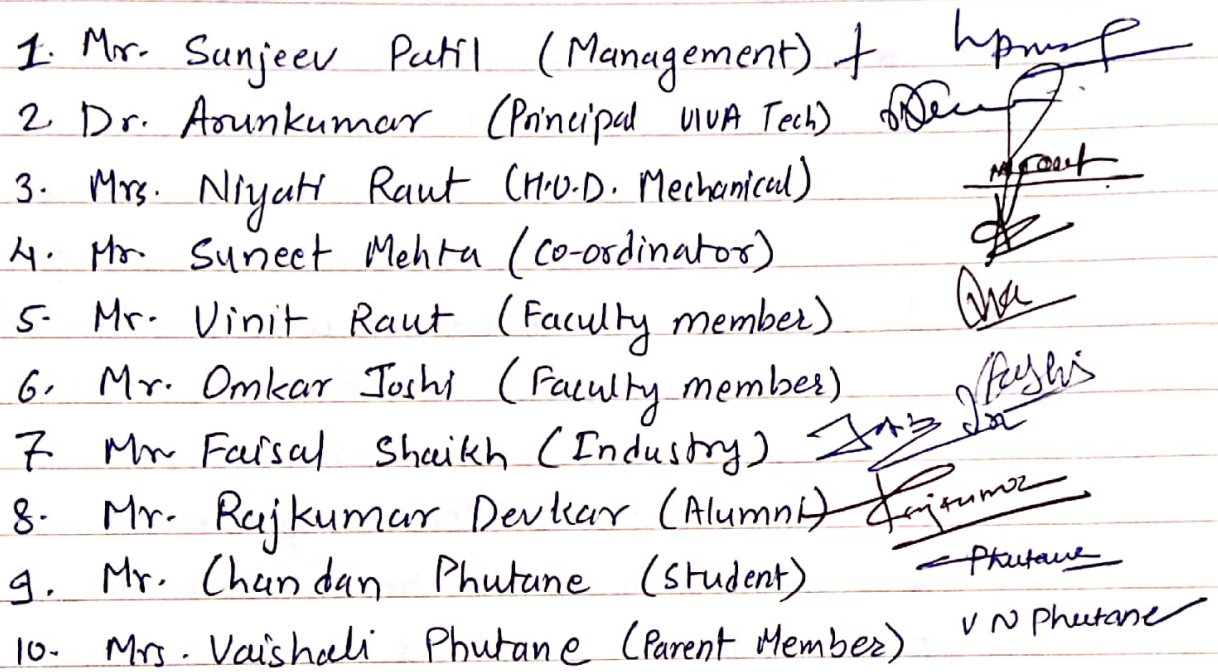 1. Mr. Sunjeev Patil (Management) +
2 Dr. Arunkumar (Principal VIVA Tech)
3. Mrs. Niyati Raut (H.O.D. Mechanical) Mraut
4. Mr Suneet Mehta (Co-ordinator)
5- Mr. Vinit Raut (Faculty member)
6. Mr. Omkar Joshi (Faculty member)
7 Mr Faisal Shaikh (Industry)
8. Mr. Rajkumar Devkar (Alumni) Rajkumar
9. Mr. Chandan Phutane (Student) Phutane
10- Mrs. Vaishali Phutane (Parent Member) V N Phutane